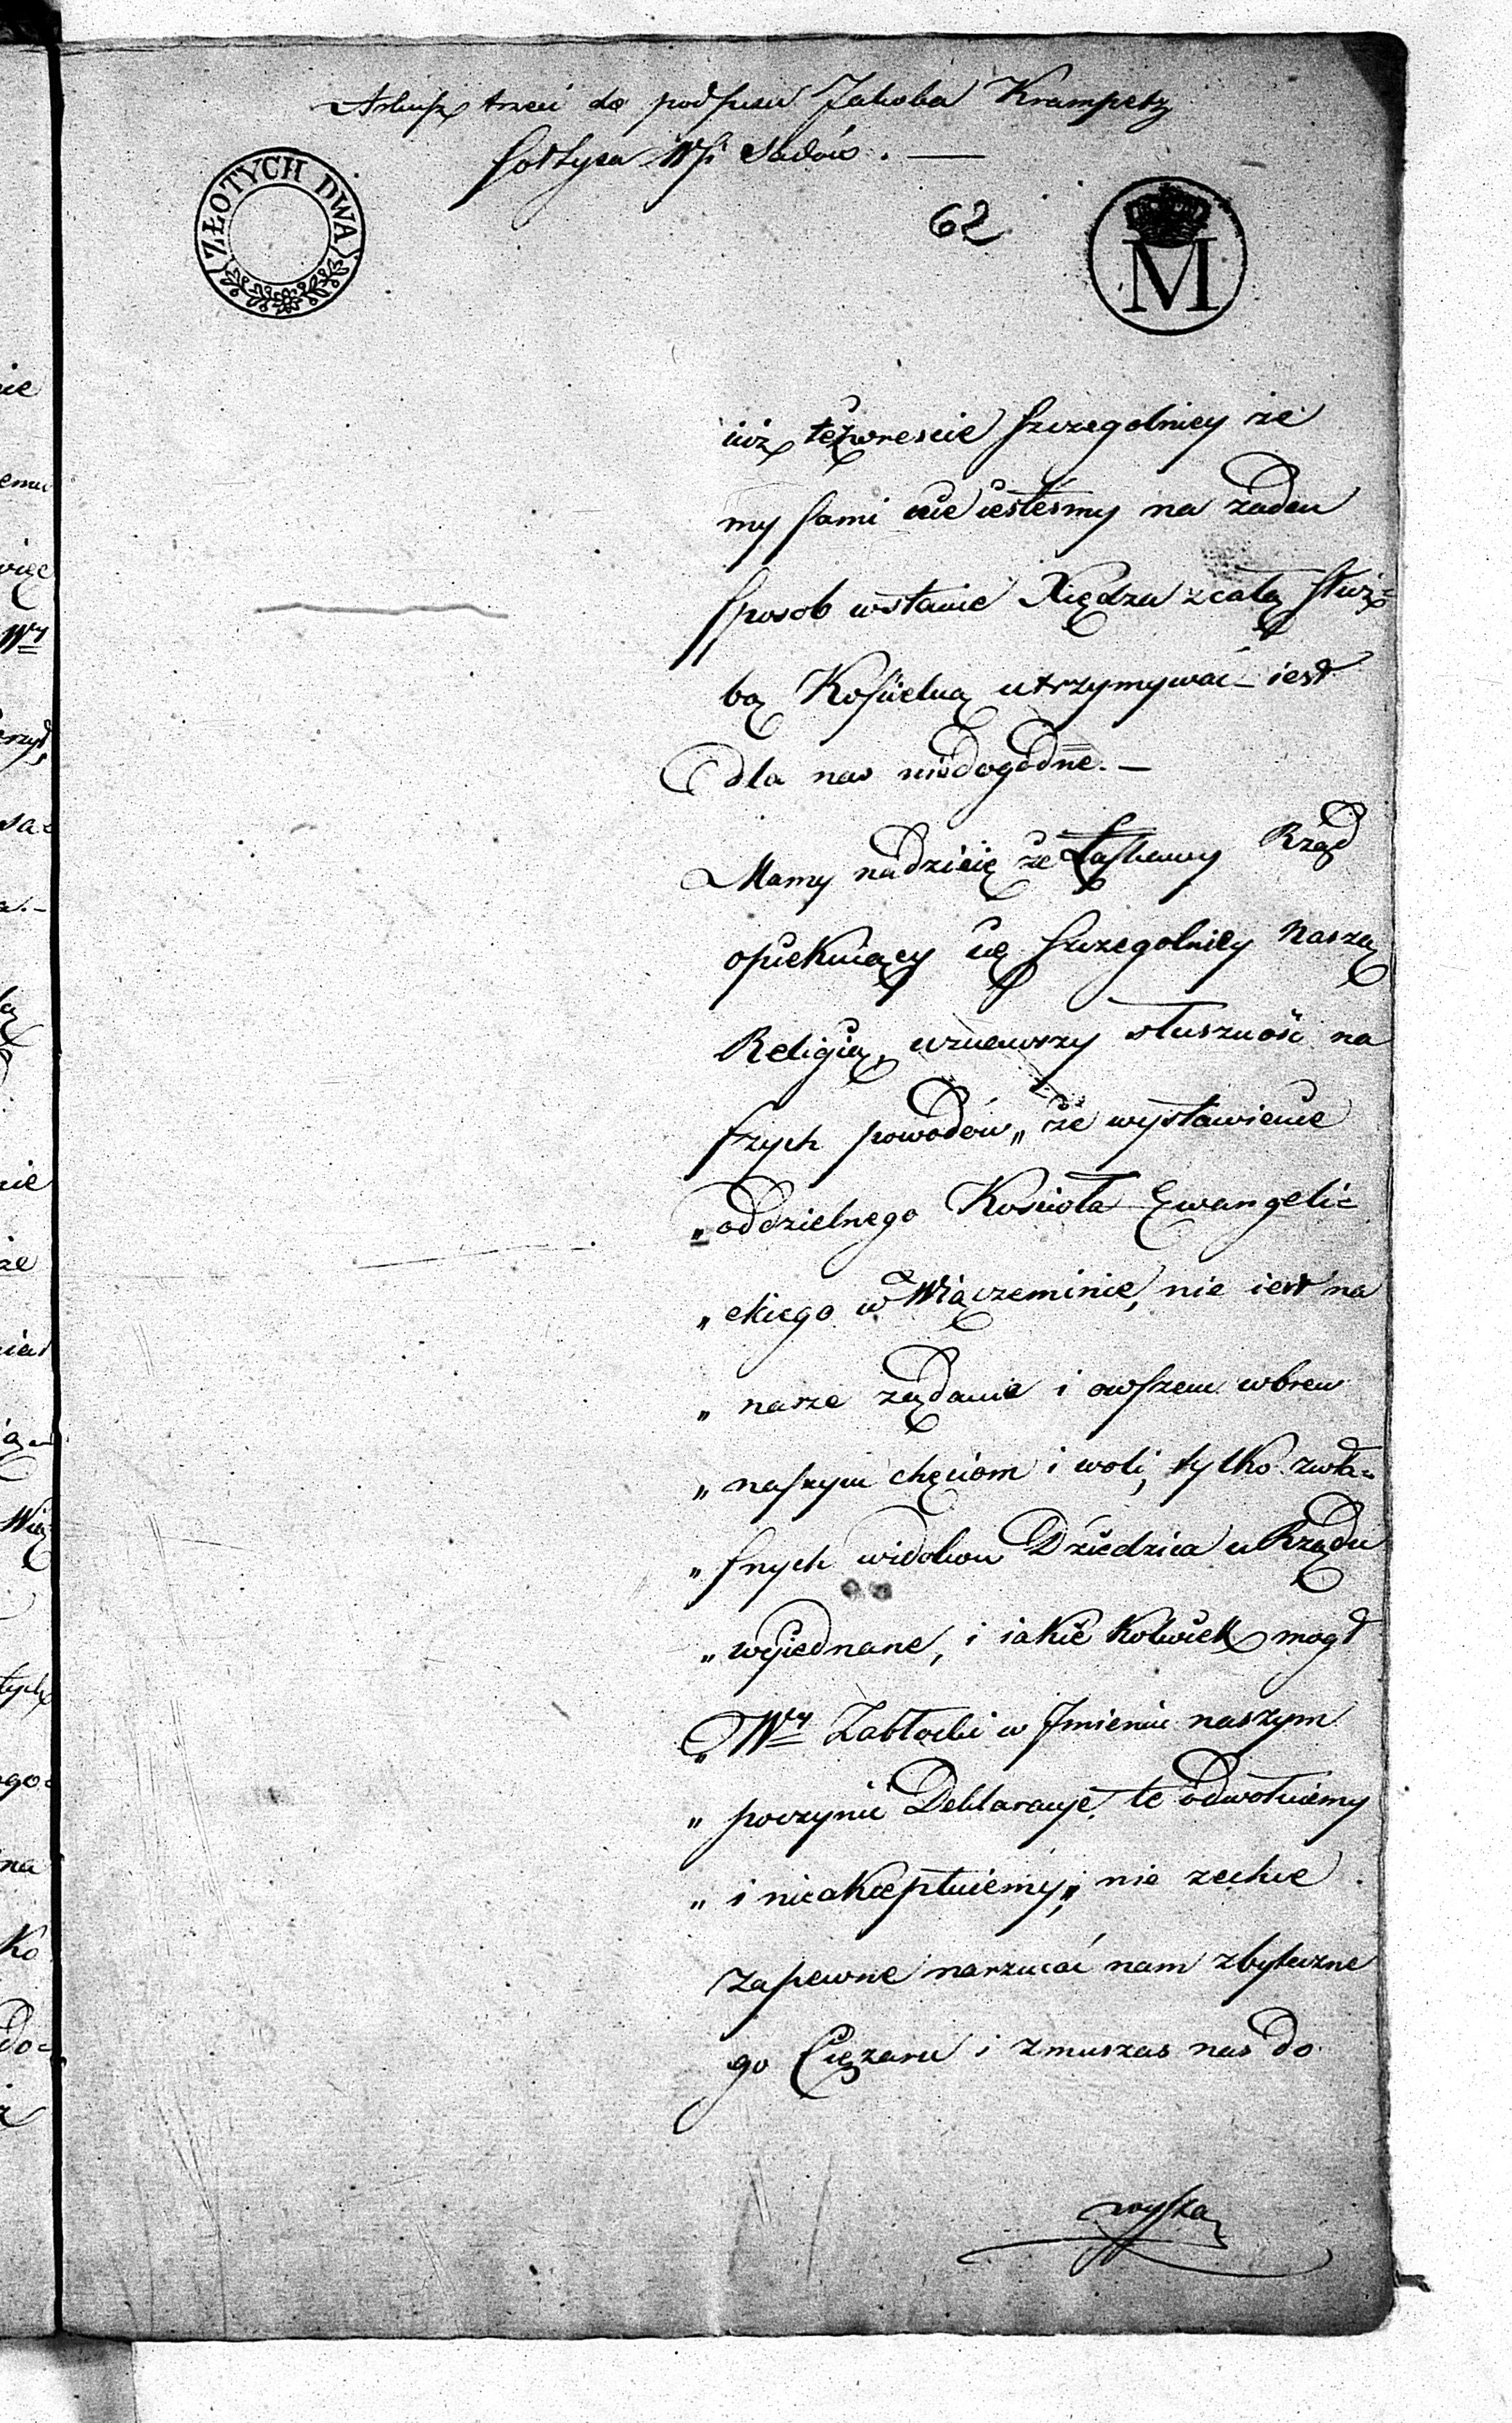 Arkusz trzeci do podpisu Jakoba Krampetz
Sołtysa Wsi Sadów. —
ZŁOTYCH DWA
62
M
iuż też wrescie szczegolniey że
my sami nie iesteśmy na żaden
sposob wstanie Xiędza z całą służ=
bą Kościelną utrzymywać – iest
dla nas niedogodne. —
Mamy nadzieię że Łaskawy Rząd
opiekuiący się szczegolniey naszą
Religią, uznawszy słuszność na
szych powodów „ że wystawienie
„ oddzielnego Kościoła Ewangelic=
„ ckiego w Wiączeminie, nie iest na
„ nasze żądanie i owszem wbrew
„ naszym chęciom i woli, tylko zwła=
„ snych widokow Dziedzica u Rządu
„ wyiednane, i iakie kolwiek mogł
„ Wny Zabłocki w Imieniu naszym
„ poczynić Deklaracye, te odwołuiemy
„ i nieakceptuiemy „ nie zechce
zapewne narzucać nam zbyteczne
go Ciężaru i zmuszać nas do